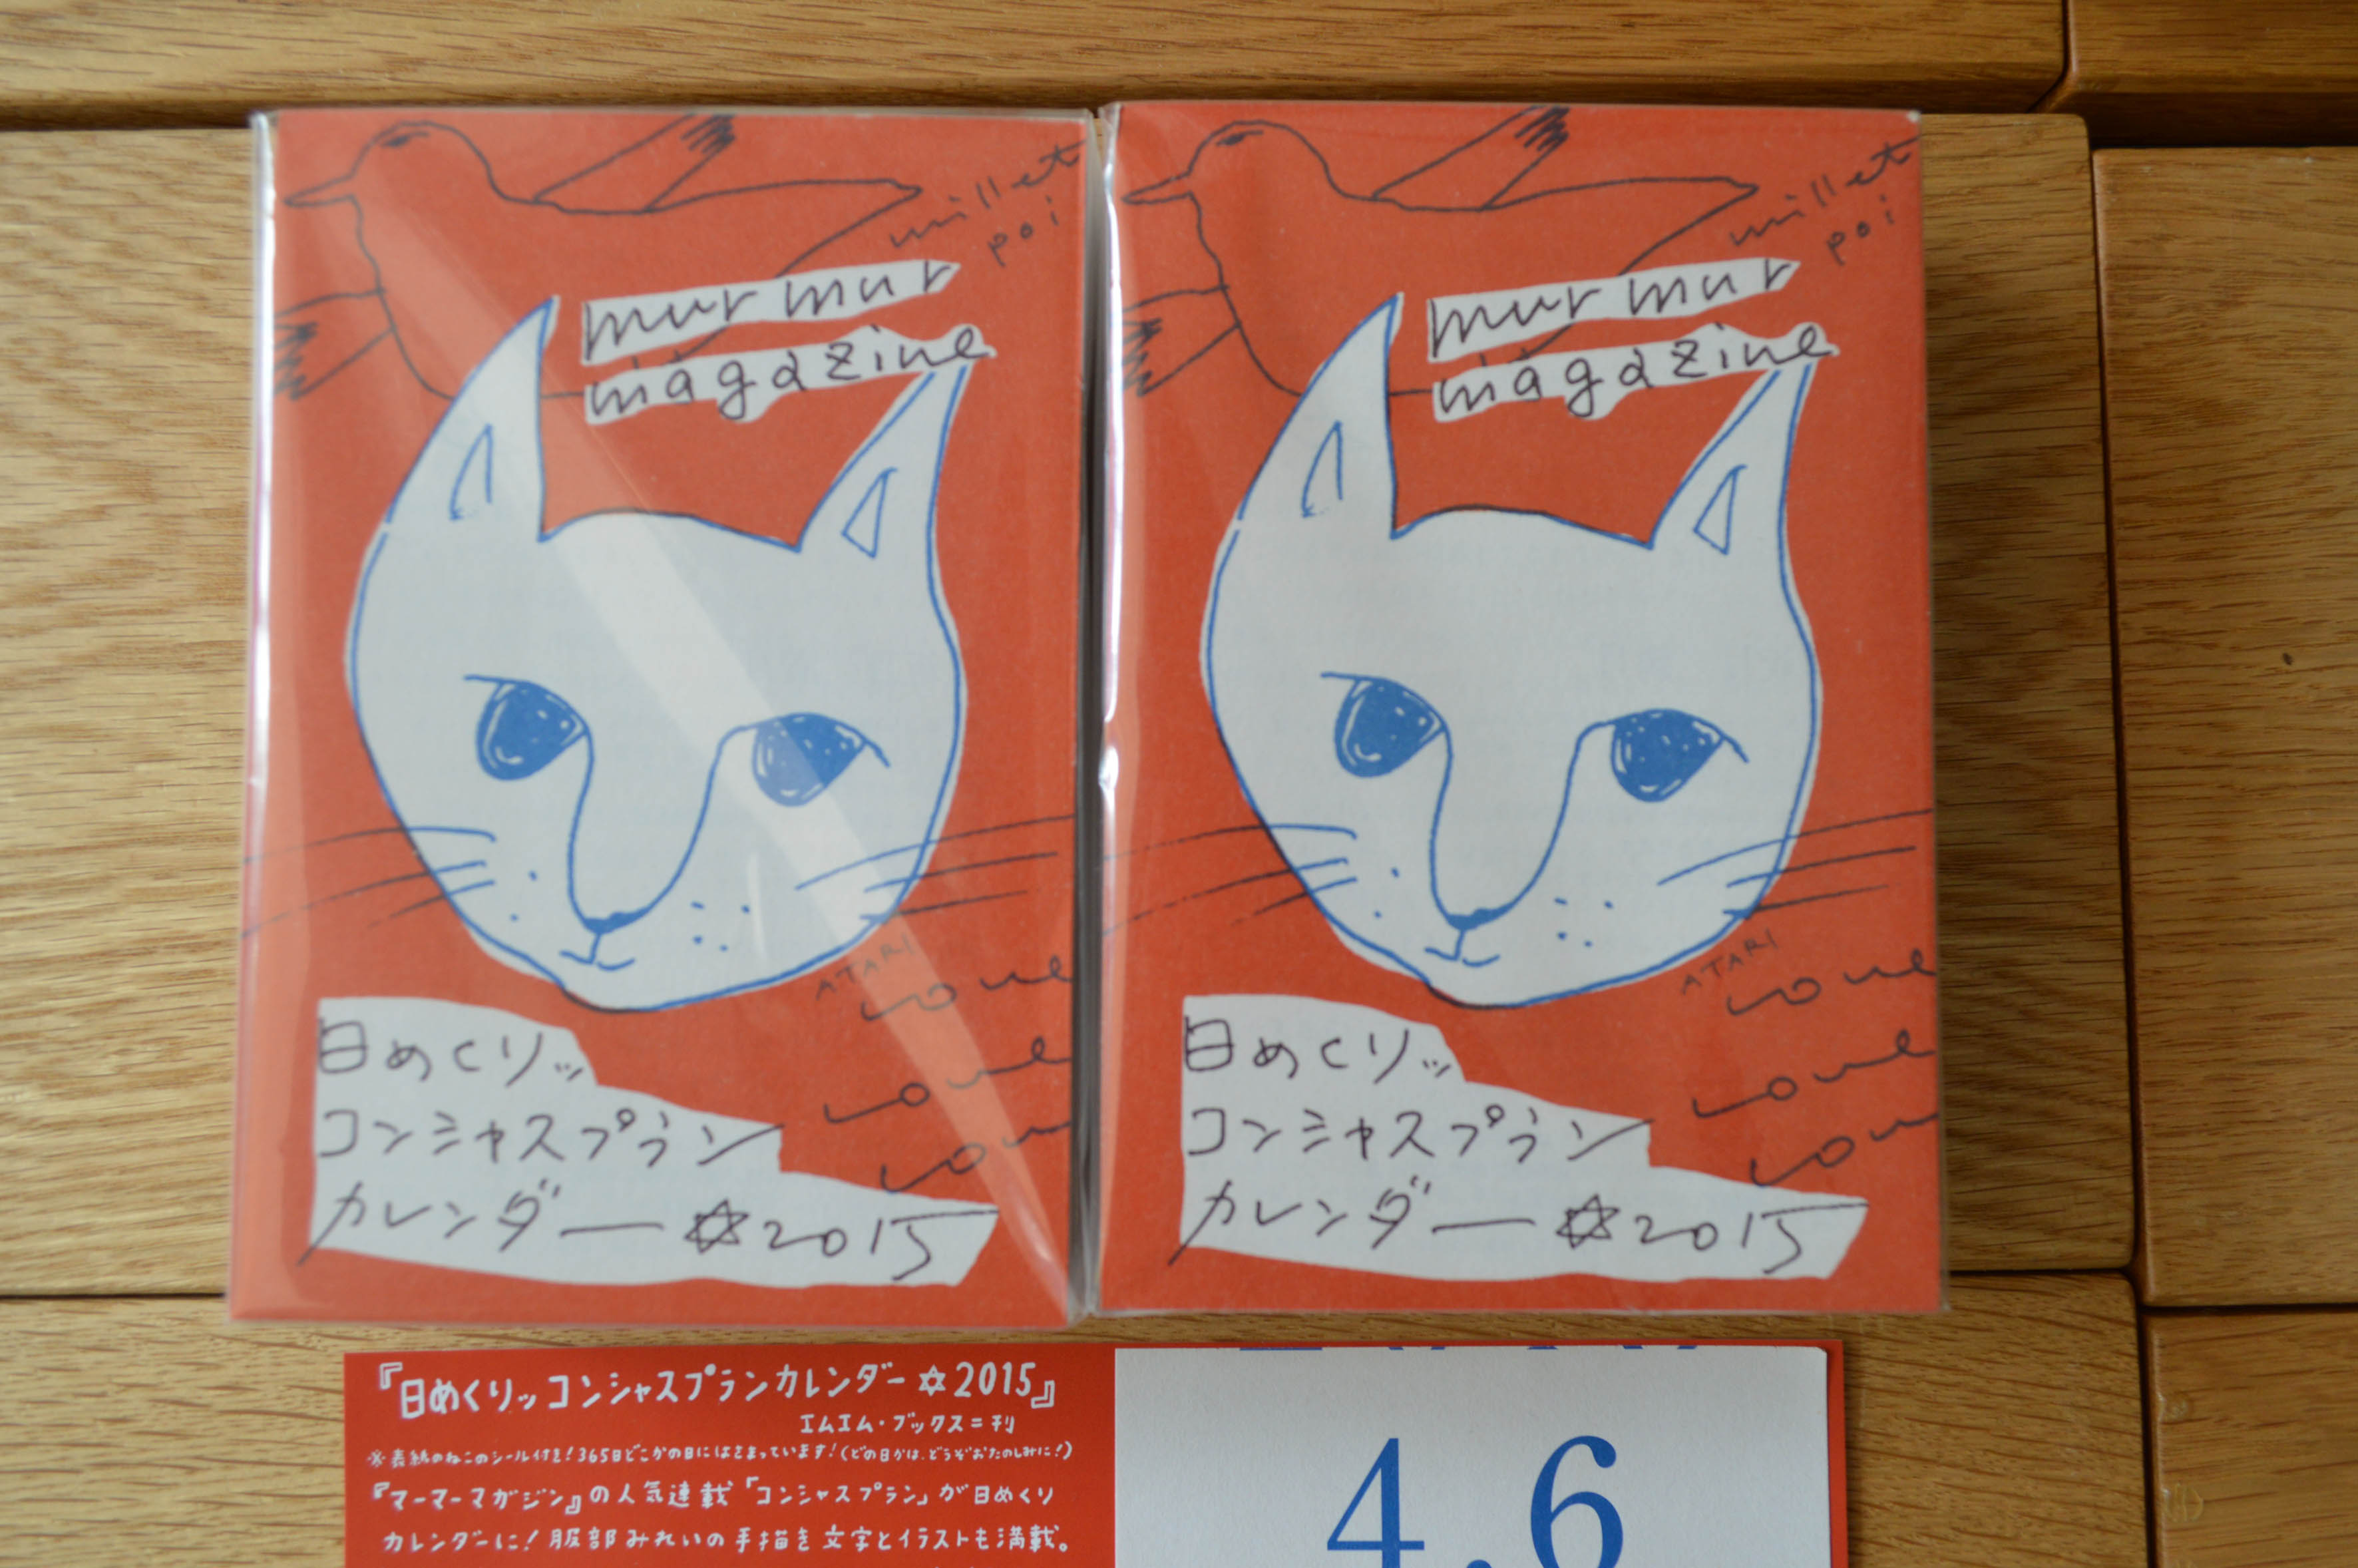 millet
poi
mur mur
magazine
ATARI
love
love
日めくりッ
コンシャスプラン
カレンダー☆2015
millet
poi
mur mur
magazine
ATARI
love
love
日めくりッ
コンシャスプラン
カレンダー☆2015
『日めくりッコンシャスプランカレンダー☆2015』
エムエム・ブックス=刊
※表紙のねこのシール付き!365日どこかの日にはさまっています!(どの日かは、どうぞおたのしみに!)
『マーマーマガジン』の人気連載「コンシャスプラン」が日めくり
カレンダーに!服部みれいの手描き文字とイラストも満載。
4.6